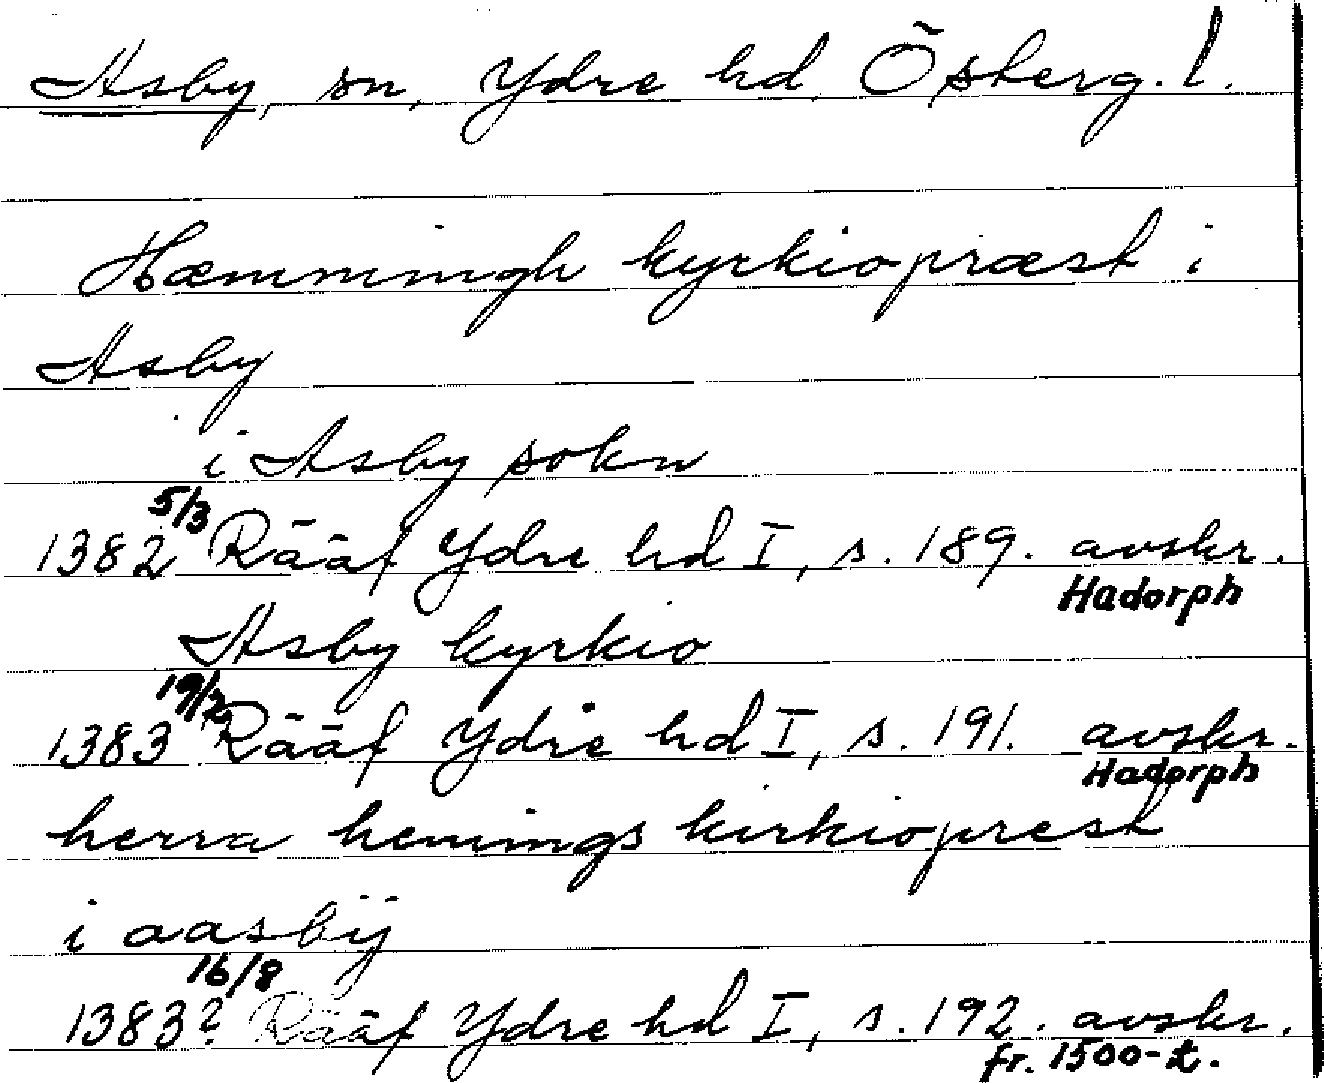 Asby, sn, Ydre hd, Österg. l.
Hæmmingh kyrkiopræst i
Asby
i Asby sokn
1382 5/3 Rääf Ydre hd I, s. 189. avskr.
Hadorph
Asby kyrkio
1383 19/2 Rääf Ydre hd I, s. 191. avskr.
Hadorph
herra hemings kirkioprest
i aasbÿ
16/8
1383? Rääf Ydre hd I, s. 192. avskr.
fr. 1500-t.